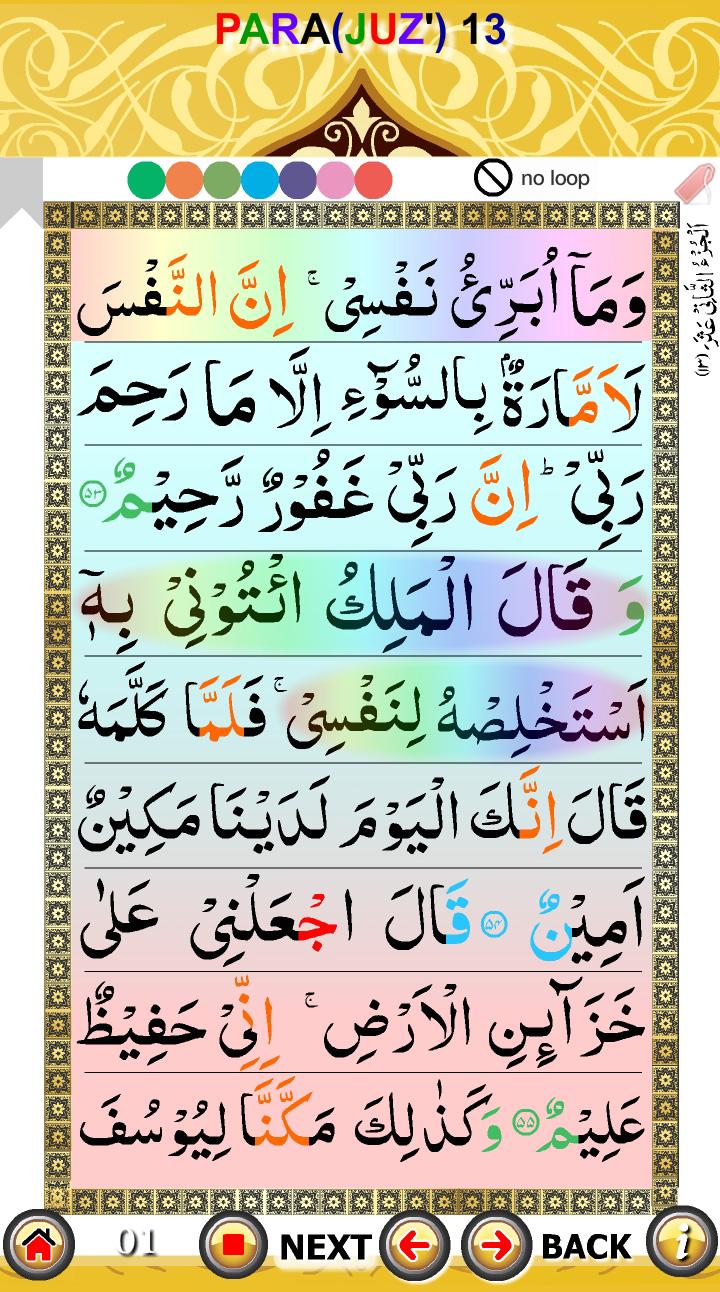 PARA(JUZ') 13
no loop
اَلْجُزْءُ الثَّانِیْ عَشَرَ (۱۳)
وَمَآ اُبَرِّئُ نَفْسِیْ ۚ اِنَّ النَّفْسَ
لَاَمَّارَةٌۢ بِالسُّوْٓءِ اِلَّا مَا رَحِمَ
رَبِّیْ ؕ اِنَّ رَبِّیْ غَفُوْرٌ رَّحِیْمٌ ۵۳
وَ قَالَ الْمَلِكُ ائْتُوْنِیْ بِهٖٓ
اَسْتَخْلِصْهُ لِنَفْسِیْ ۚ فَلَمَّا كَلَّمَهٗ
قَالَ اِنَّكَ الْیَوْمَ لَدَیْنَا مَكِیْنٌ
اَمِیْنٌ ۵۴ قَالَ اجْعَلْنِیْ عَلٰی
خَزَآىِٕنِ الْاَرْضِ ۚ اِنِّیْ حَفِیْظٌ
عَلِیْمٌ ۵۵ وَكَذٰلِكَ مَكَّنَّا لِیُوْسُفَ
01 NEXT BACK i